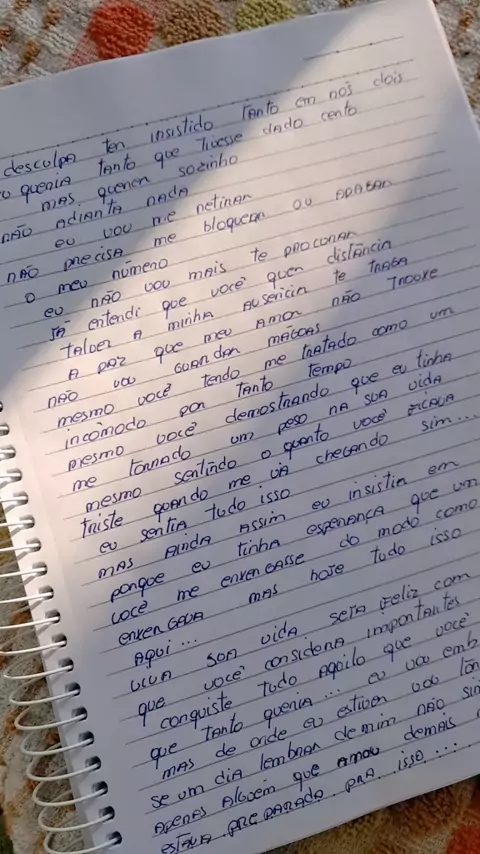 desculpa ter insistido tanto em nós dois
eu queria tanto que tivesse dado certo
mas querer sozinho
não adianta nada
eu vou me retirar
não precisa me bloquear ou apagar
o meu número
eu não vou mais te procurar
já entendi que você quer distância
talvez a minha ausência te traga
a paz que meu amor não trouxe
não vou guardar mágoas
mesmo você tendo me tratado como um
incômodo por tanto tempo
mesmo você demostrando que eu tinha
me tornado um peso na sua vida
mesmo sentindo o quanto você ficava
triste quando me via chegando sim...
eu sentia tudo isso
mas ainda assim eu insistia em
porque eu tinha esperança que um
você me enxergasse do modo como
enxergava mas hoje tudo isso
Aqui...
viva sua vida seja feliz com
que você considera importantes
conquiste tudo aquilo que você
que tanto queria... eu vou emb
mas de onde eu estiver vou
se um dia lembrar de mim não
apenas alguém que amou demais
estava preparada pra isso...